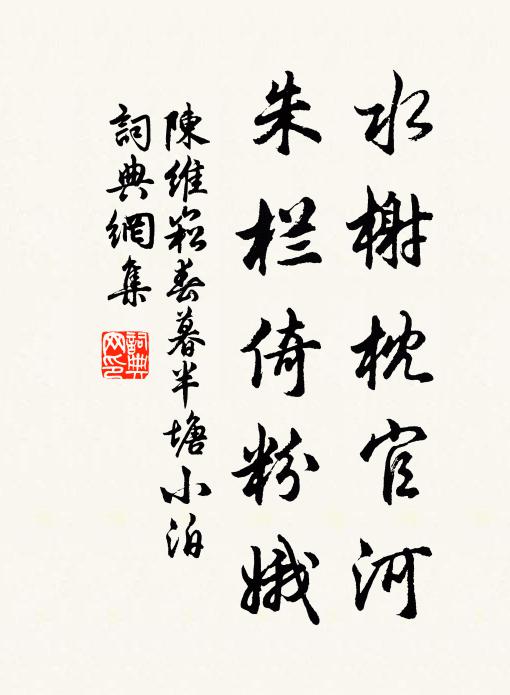 水榭枕官河
朱栏倚粉娥
陳維崧春暮半塘小泊
詞典網集
詞典网印